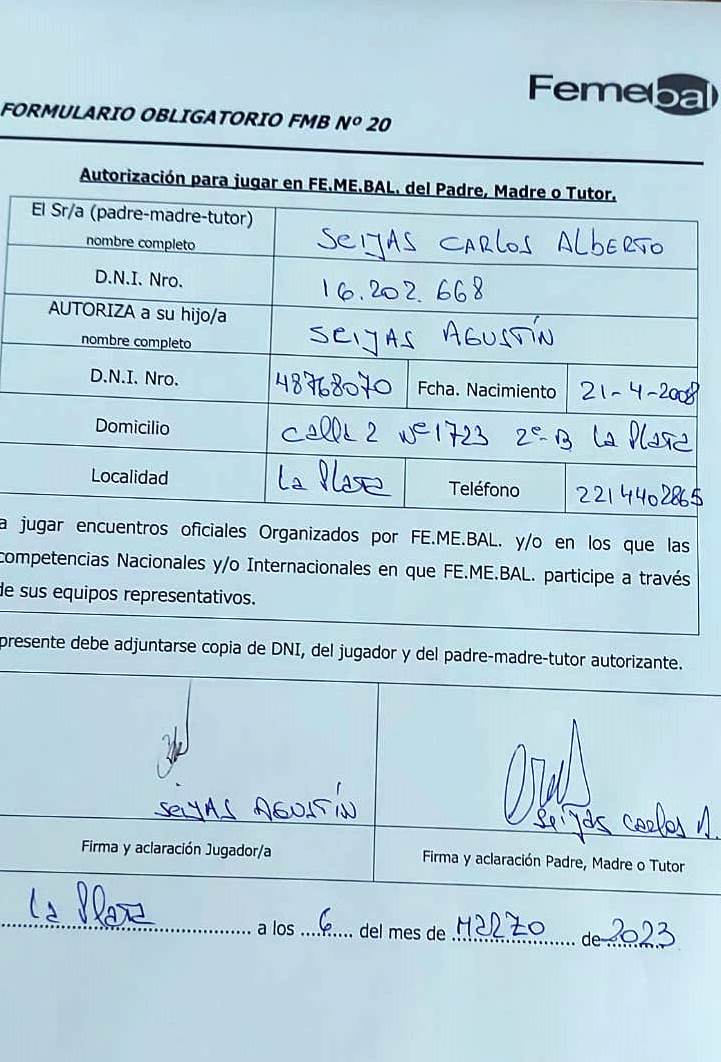 Femebal
FORMULARIO OBLIGATORIO FMB Nº 20
Autorización para jugar en FE.ME.BAL. del Padre, Madre o Tutor.
El Sr/a (padre-madre-tutor)
nombre completo
SEIJAS CARLOS ALBERTO
D.N.I. Nro.
16.202.668
AUTORIZA a su hijo/a
nombre completo
SEIJAS AGUSTÍN
D.N.I. Nro.
48768070
Fcha. Nacimiento
21-4-2008
Domicilio
Calle 2 Nº 1723 2º-B La Plata
Localidad
La Plata
Teléfono
221 4402865
a jugar encuentros oficiales Organizados por FE.ME.BAL. y/o en los que las
competencias Nacionales y/o Internacionales en que FE.ME.BAL. participe a través
de sus equipos representativos.
presente debe adjuntarse copia de DNI, del jugador y del padre-madre-tutor autorizante.
SEIJAS AGUSTÍN
Seijas Carlos A.
Firma y aclaración Jugador/a
Firma y aclaración Padre, Madre o Tutor
La Plata a los 6 del mes de MARZO de 2023